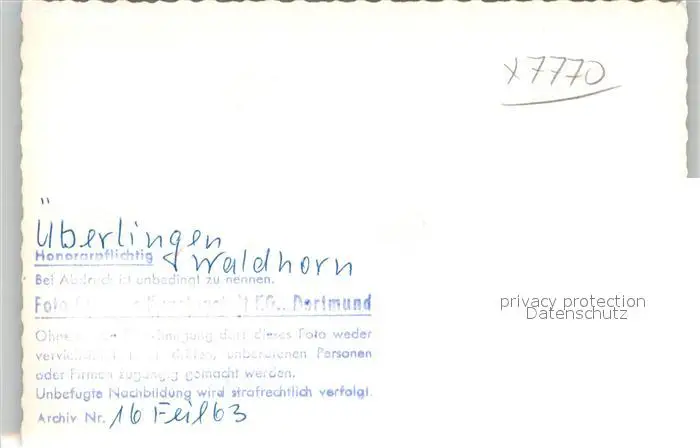 x 7770
Überlingen
Waldhorn
Honorarpflichtig
Bei Abdruck ist unbedingt zu nennen.
Foto KG., Dortmund
privacy protection
Datenschutz
Ohne darf dieses Foto weder
unberufenen Personen
oder Firmen zugängig gemacht werden.
Unbefugte Nachbildung wird strafrechtlich verfolgt.
Archiv Nr. 16 Feil 63